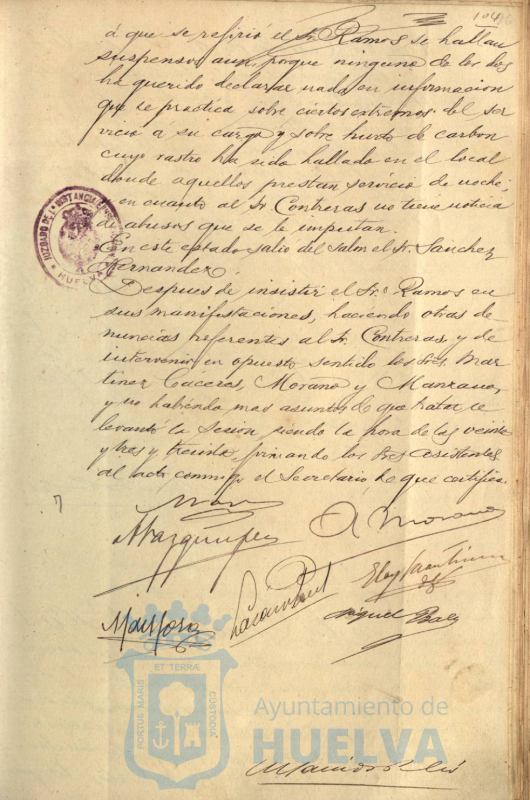 á que se refirió el Sr. Ramos se hallan
suspensos aun, porque ninguno de los dos
ha querido declarar nada en informacion
que se practica sobre ciertos extremos del ser
vicio a su cargo y sobre hurto de carbon
cuyo rastro ha sido hallado en el local
donde aquellos prestan servicio de noche;
en cuanto al Sr Contreras no tiene noticia
de abusos que se le imputan.
En este estado salió del Salon el Sr. Sanchez
Hernandez.
Despues de insistir el Sr. Ramos en
sus manifestaciones, haciendo otras de
nuncias referentes al Sr. Contreras, y de
intervenir en opuesto sentido los Sres. Mar
tinez Cáceres, Moraño y Manzano,
y no habiendo mas asuntos de que tratar se
levantó la Sesion siendo la hora de las veinte
y tres y treinta, firmando los Sres asistentes
al acto conmigo el Secretario, de que certifico.
A Morano
Miguel Baez
JUZGADO DE 1ª INSTANCIA
HUELVA
PORTUS MARIS ET TERRÆ CUSTODIA
Ayuntamiento de
HUELVA